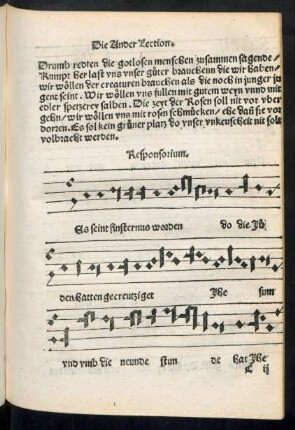 Die Ander Lection.
Drumb redten die gotlosen menschen zusammen sagende/
Kumpt her last vns vnser güter brauchenn die wir haben/
wir wöllen der creaturen brauchen als die noch in junger ju
gent seint. Wir wöllen vns füllen mit gutem weyn vnnd mit
edler spetzerey salben. Die zeyt der Rosen soll nit vor vber
gehn/ wir wöllen vns mit rosen schmücken/ ehe daß sie vor
dorren. Es sol kein grüner platz do vnser vnkeuscheit nit solt
volbracht werden.
Responsorium.
Es seint finsternus worden do die Jü
den hatten gecreutziget Jhe sum
vnd vmb die neunde stun de hat Jhe
ij